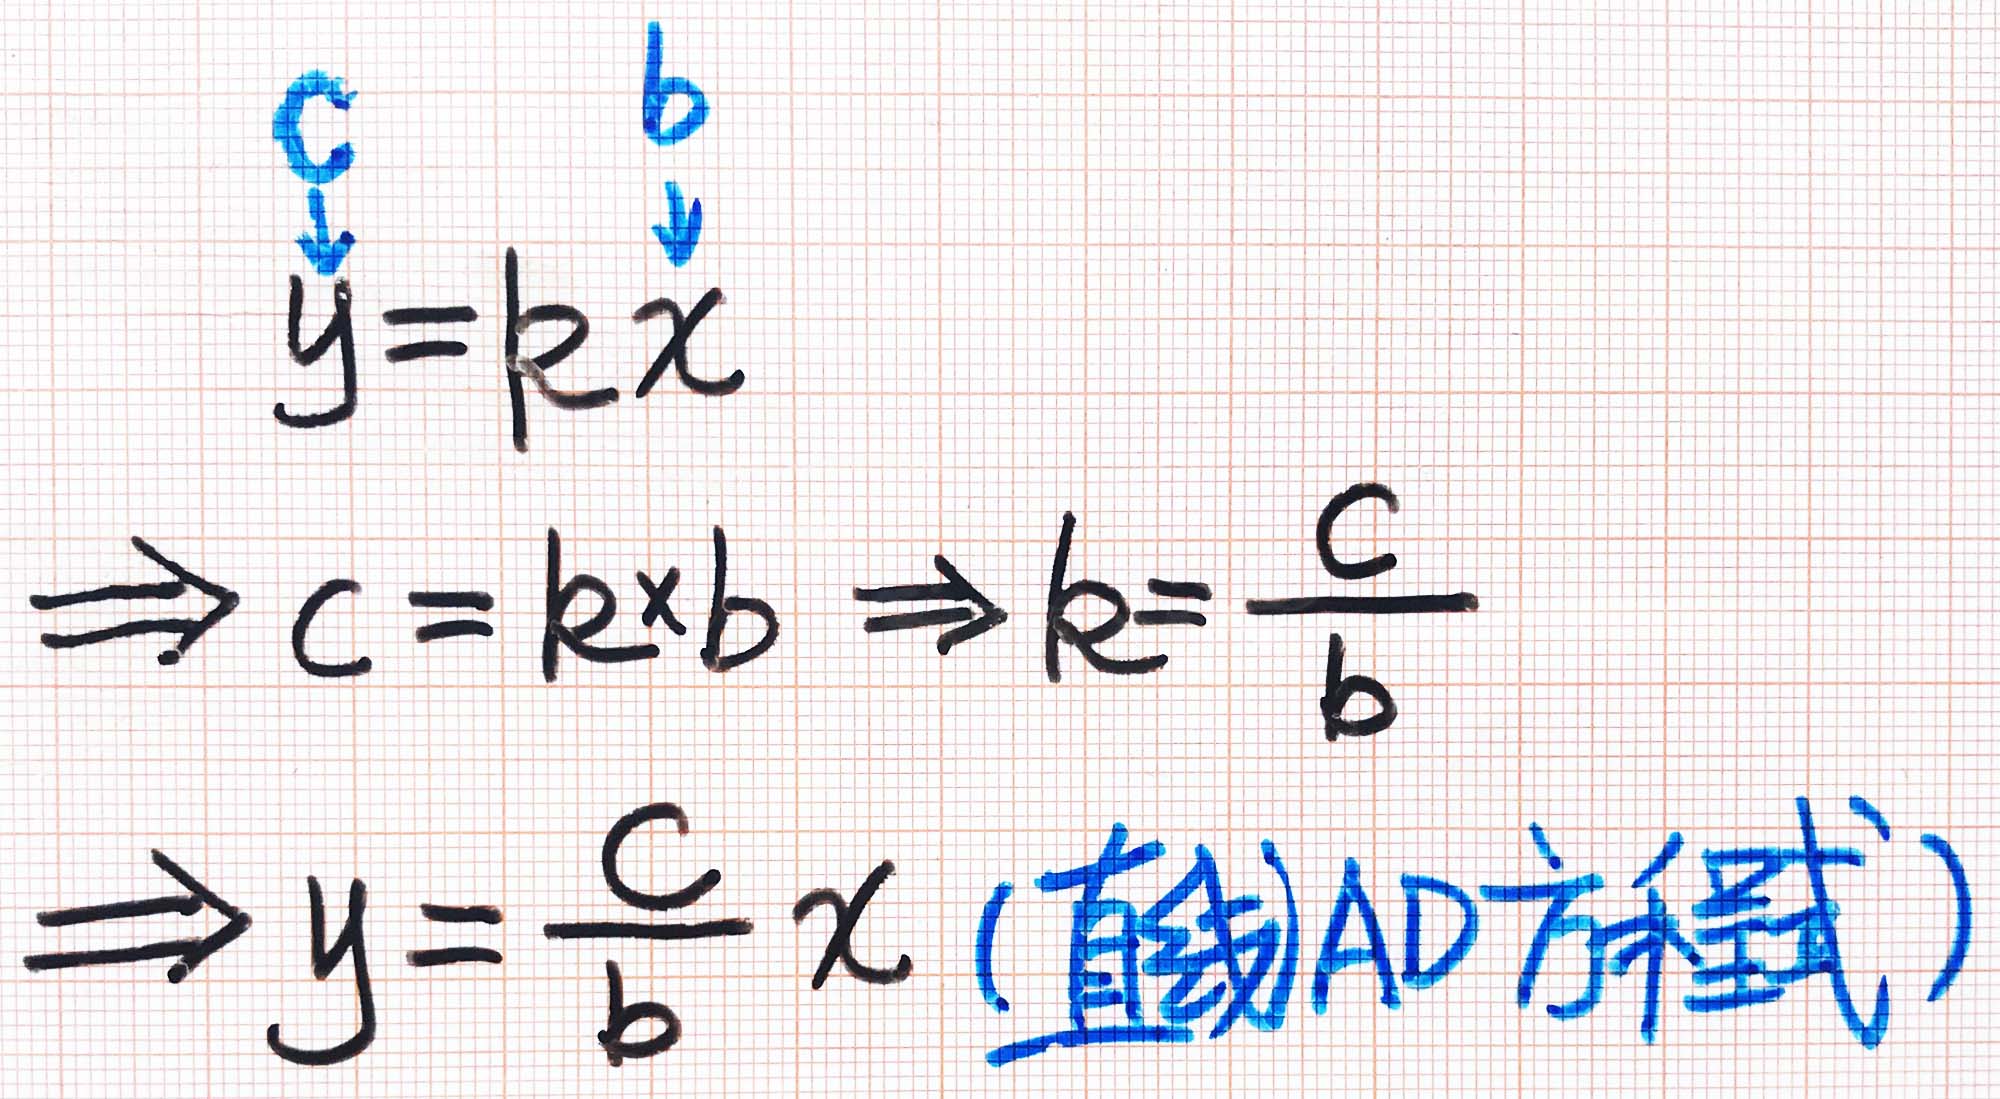 c b
↓ ↓
y = kx
⇒ c = k×b ⇒ k = c/b
⇒ y = c/b x (直线AD方程式)